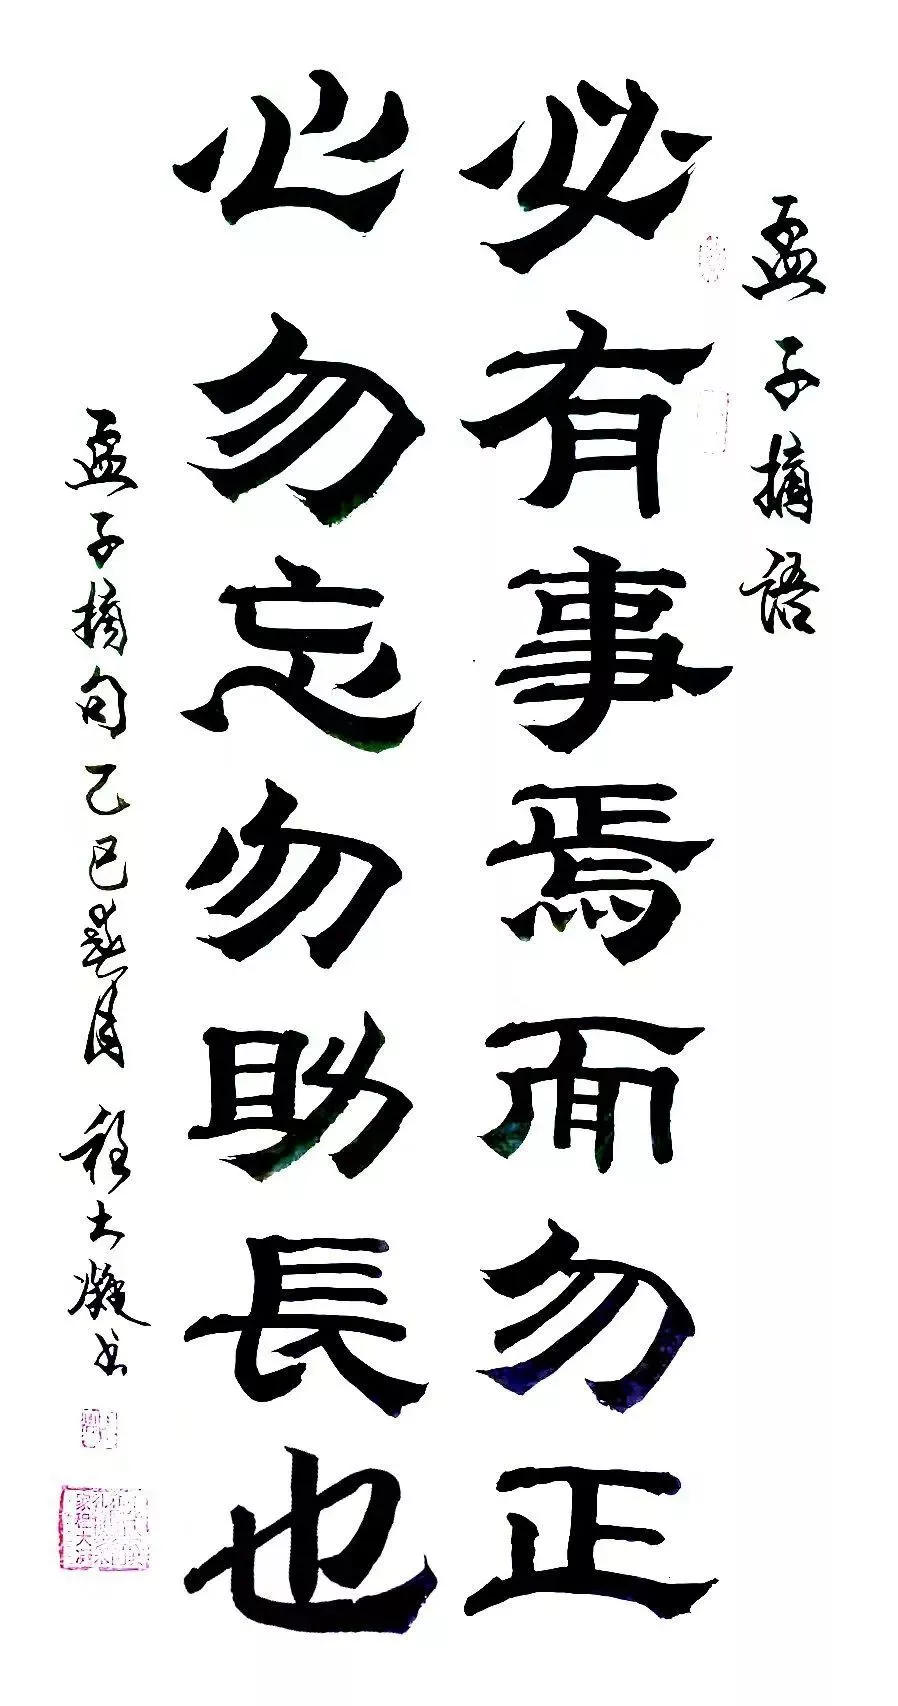 孟子摘语
必有事焉而勿正
心勿忘勿助長也
孟子摘句乙巳春月 程大凝书